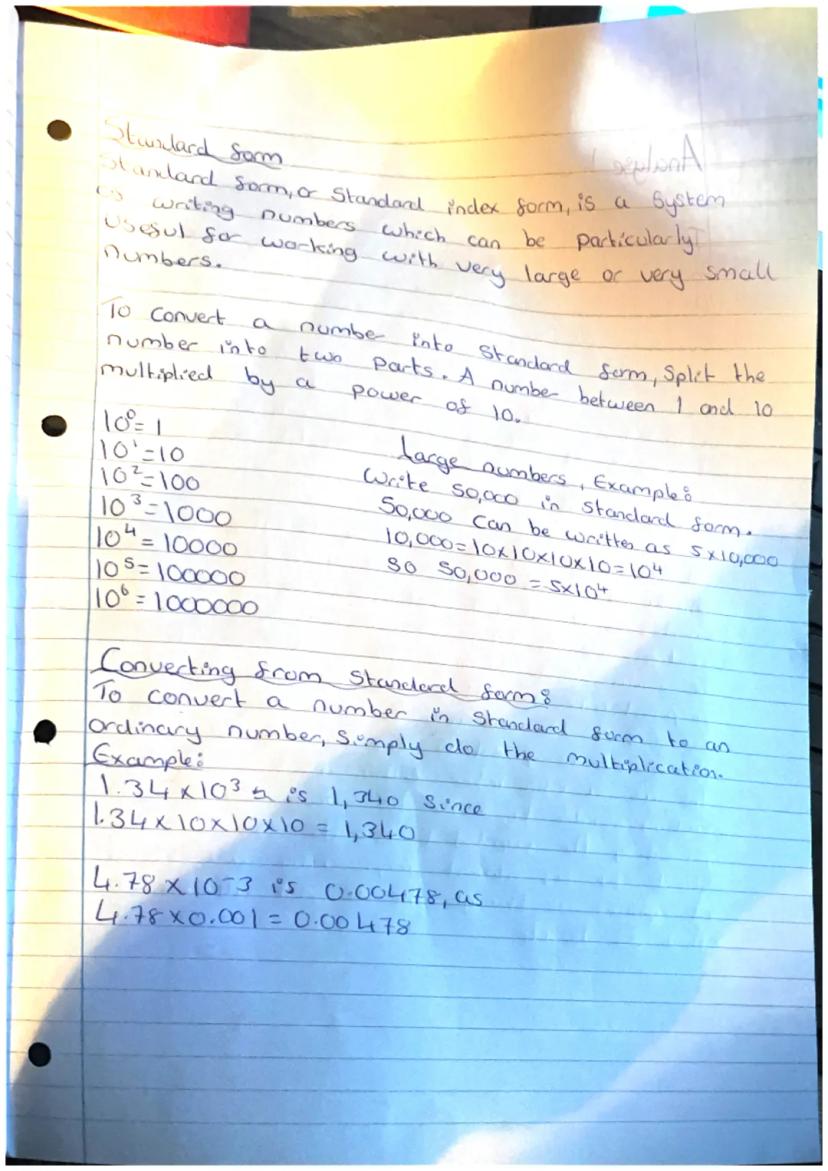 Standard form
Standard form, or Standard index form, is a System
of writing numbers which can be particularly
useful for working with very large or very small
numbers.
To convert a number into Standard form, Split the
number into two parts. A number between 1 and 10
multiplied by a power of 10.
10⁰=1
10¹=10
10²=100
10³=1000
10⁴=10000
10⁵=100000
10⁶=1000000
Large numbers, Example:
Write 50,000 in Standard form.
50,000 can be written as 5x10,000
10,000=10x10x10x10=10⁴
so 50,000=5x10⁴
Converting from Standard form:
To convert a number in Standard form to an
ordinary number, Simply do the multiplication.
Example:
1.34x10³ is 1,340 Since
1.34x10x10x10=1,340
4.78x10⁻3 is 0.00478, as
4.78x0.001=0.00478